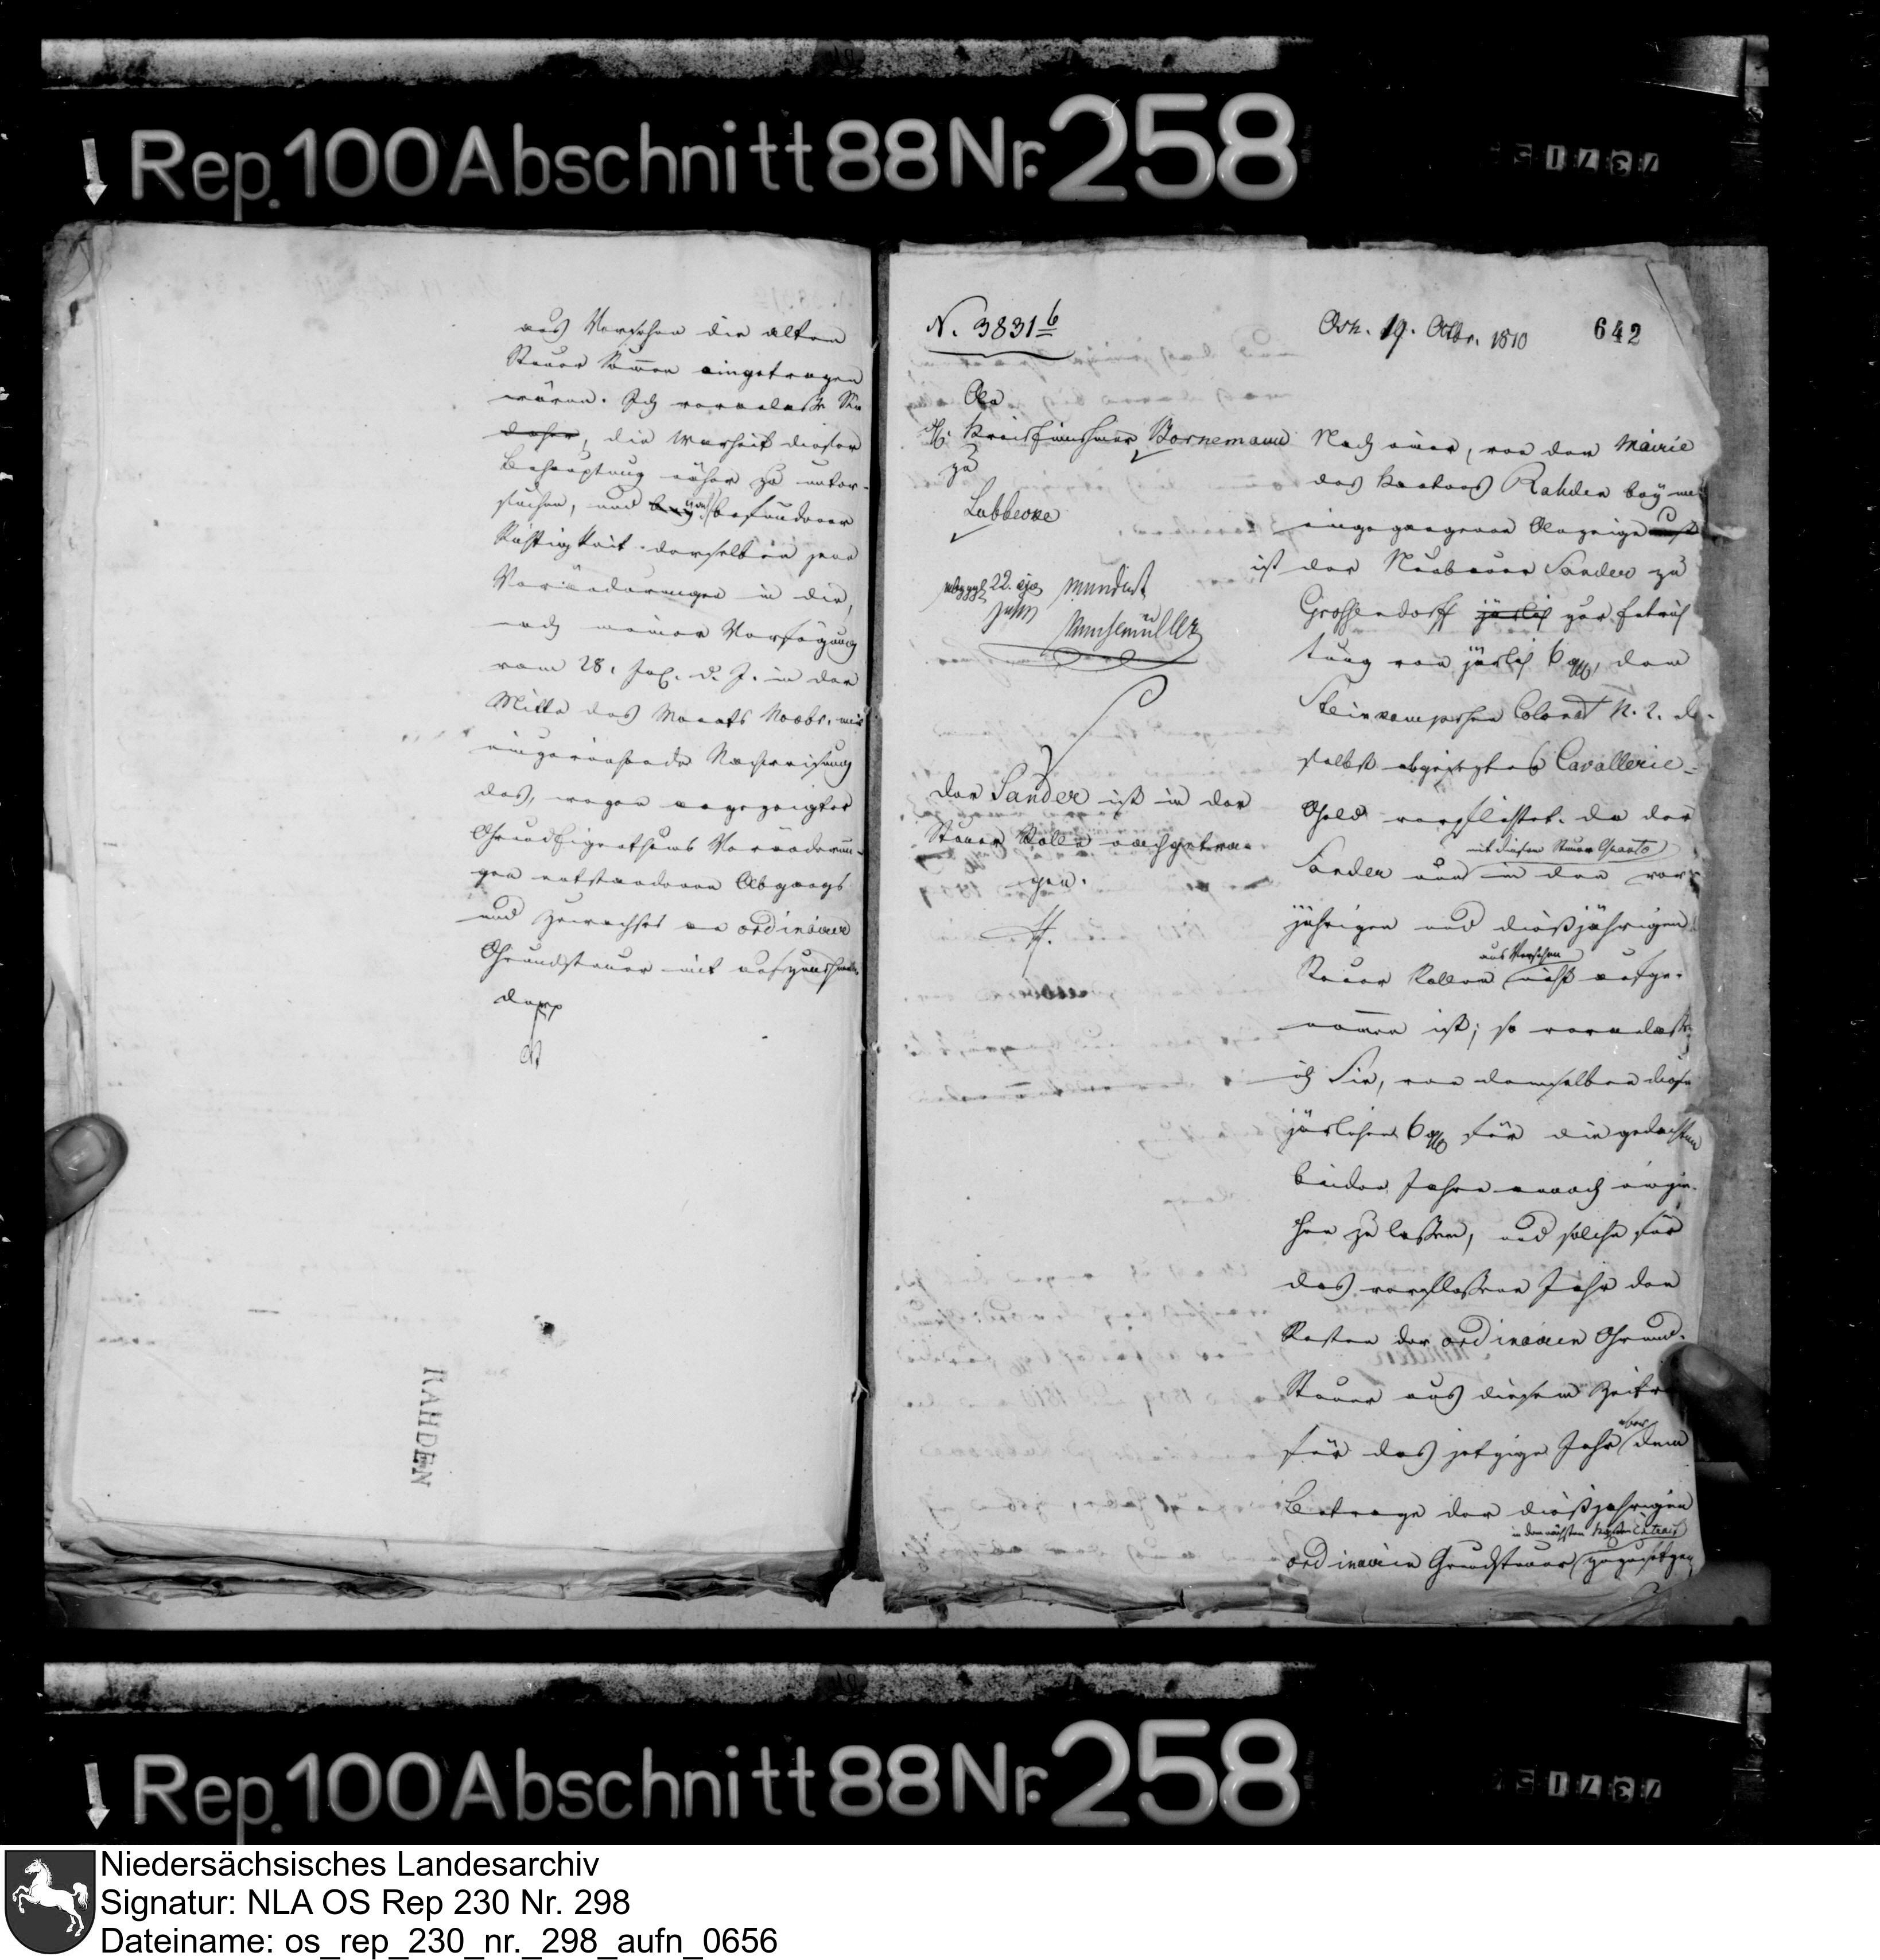 Rep. 100 Abschnitt 88 Nr. 258
aus Versehen die alten
Steuer Summen eingetragen
wären. Ich veranlaße Sie
daher, die Warheit dieser
Behauptung näher zu unter-
suchen, und befundener
Richtigkeit derselben jene
Veränderungen in die,
nach meiner Verfügung
vom 28. d. J. in der
Mitte des Monats Novbr. mir
einzureichende Nachweisung
des, wegen angezeigter
Grundeigenthums Veränderun-
gen entstandenen Abgangs
und Zuwachses an ordinairer
Grundsteuer mit aufzunehmen.
RAHDEN
N. 3831 b
Osn. 19. Octbr. 1810
642
An
H. Kreiseinnehmer Bornemann
zu
Lubbecke
22. ejs mundirt
Der Sander ist in der
Steuer Rolle nachgetra-
gen.
Nach einer, von der Mairie
des Kantons Rahden bey mir
eingegangenen Anzeige
ist der Neubauer Sander zu
Grossendorff järlich zur Entrich
tung von järlich 6 , dem
Steinkampschen Colonat N. 2. da-
selbst abgesetztes Cavallerie-
Geld verpflichtet. Da der
mit diesem Steuer Quanto
Sander nun in den vor-
jährigen und dießjährigen
aus Versehen
Steuer Rollen nicht aufge-
nommen ist; so veranlaße
ich Sie, von demselben diese
järlichen 6 für die gedachten
beiden Jahre annoch einzie-
hen zu laßen, und solche für
das verfloßene Jahr den
Resten der ordinairen Grund-
Steuer aus diesem
für das jetzige Jahr aber dem
Betrage der dießjährigen
in dem nächsten Extrait
ordinairen Grundsteuer zuzusetzen
Rep. 100 Abschnitt 88 Nr. 258
Niedersächsisches Landesarchiv
Signatur: NLA OS Rep 230 Nr. 298
Dateiname: os_rep_230_nr._298_aufn_0656